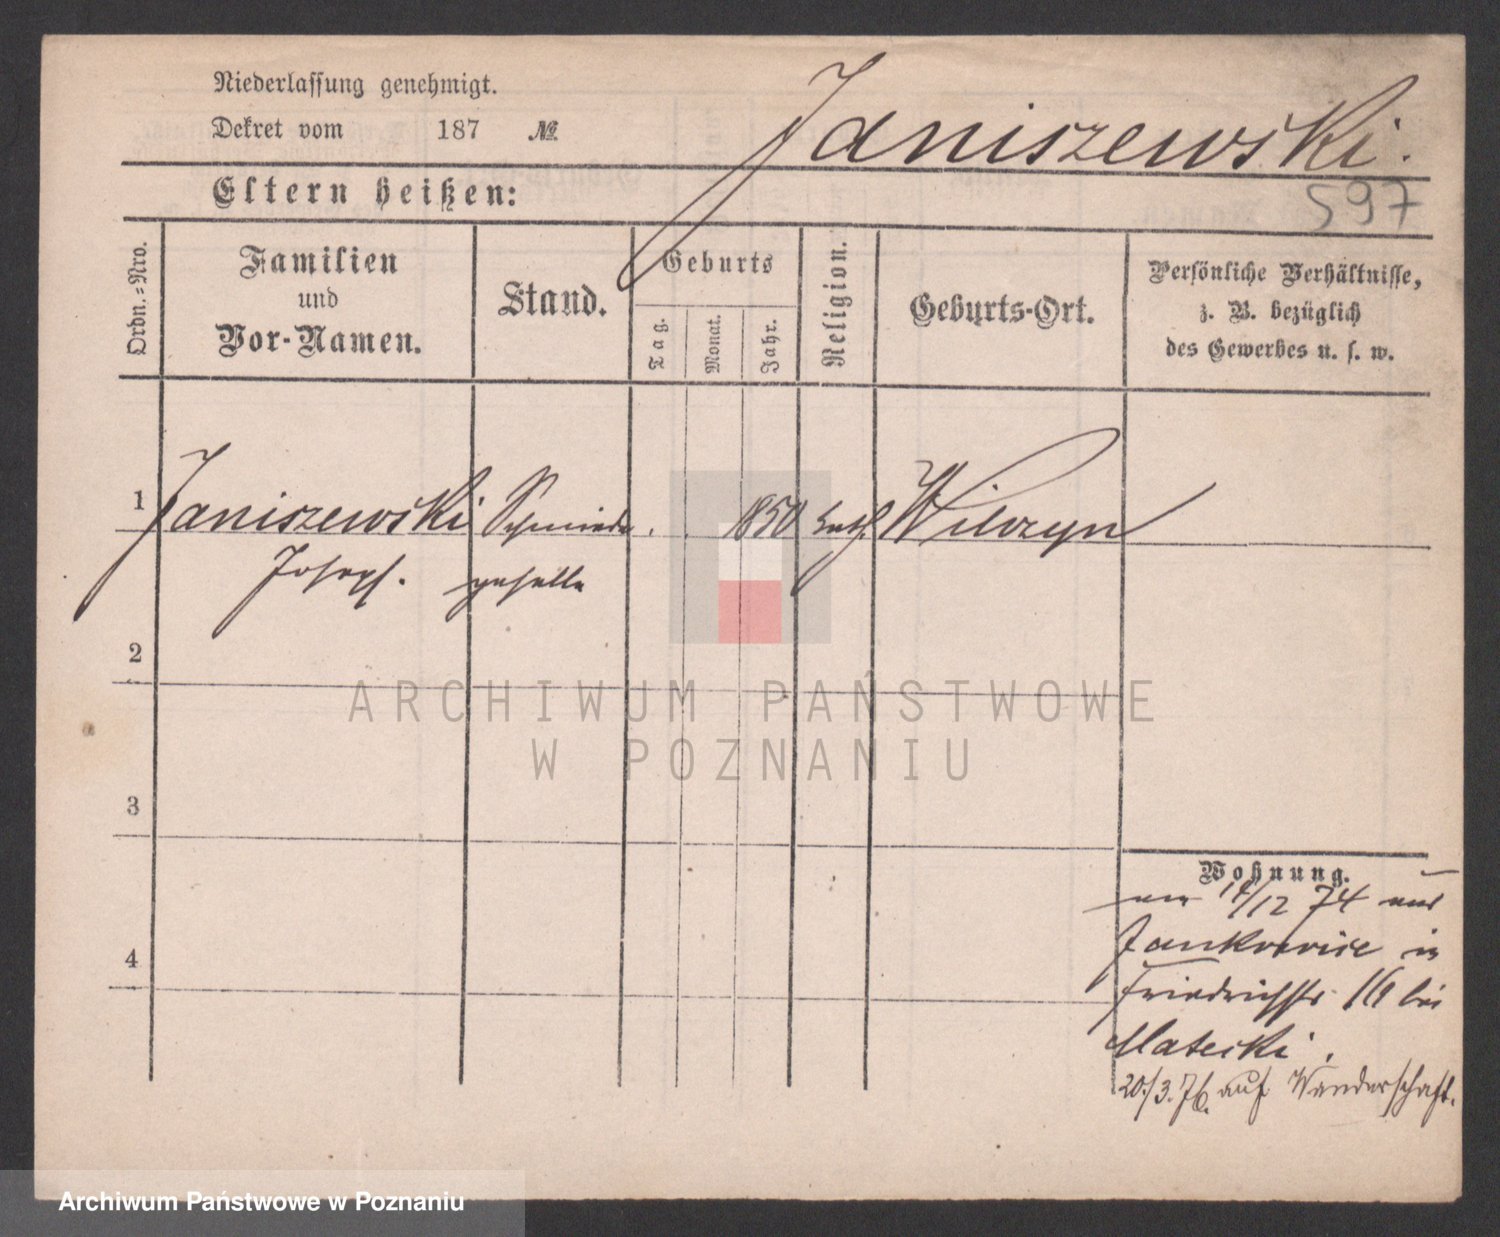 Niederlassung genehmigt.
Dekret vom 187 №
Janiszewski.
597
Eltern heißen:
Ordn.-Nro.
Familien
und
Vor-Namen.
Stand.
Geburts
Tag.
Monat.
Jahr.
Religion.
Geburts-Ort.
Persönliche Verhältnisse,
z. B. bezüglich
des Gewerbes u. s. w.
1 Janiszewski Schmiede 1850 kath. Wilczyn
Joseph. geselle
2
3
4
Wohnung.
/12 74 aus
in
Friedrichstr 16 bei
Matecki.
20./3.76. auf Wanderschaft.
ARCHIWUM PAŃSTWOWE
W POZNANIU
Archiwum Państwowe w Poznaniu